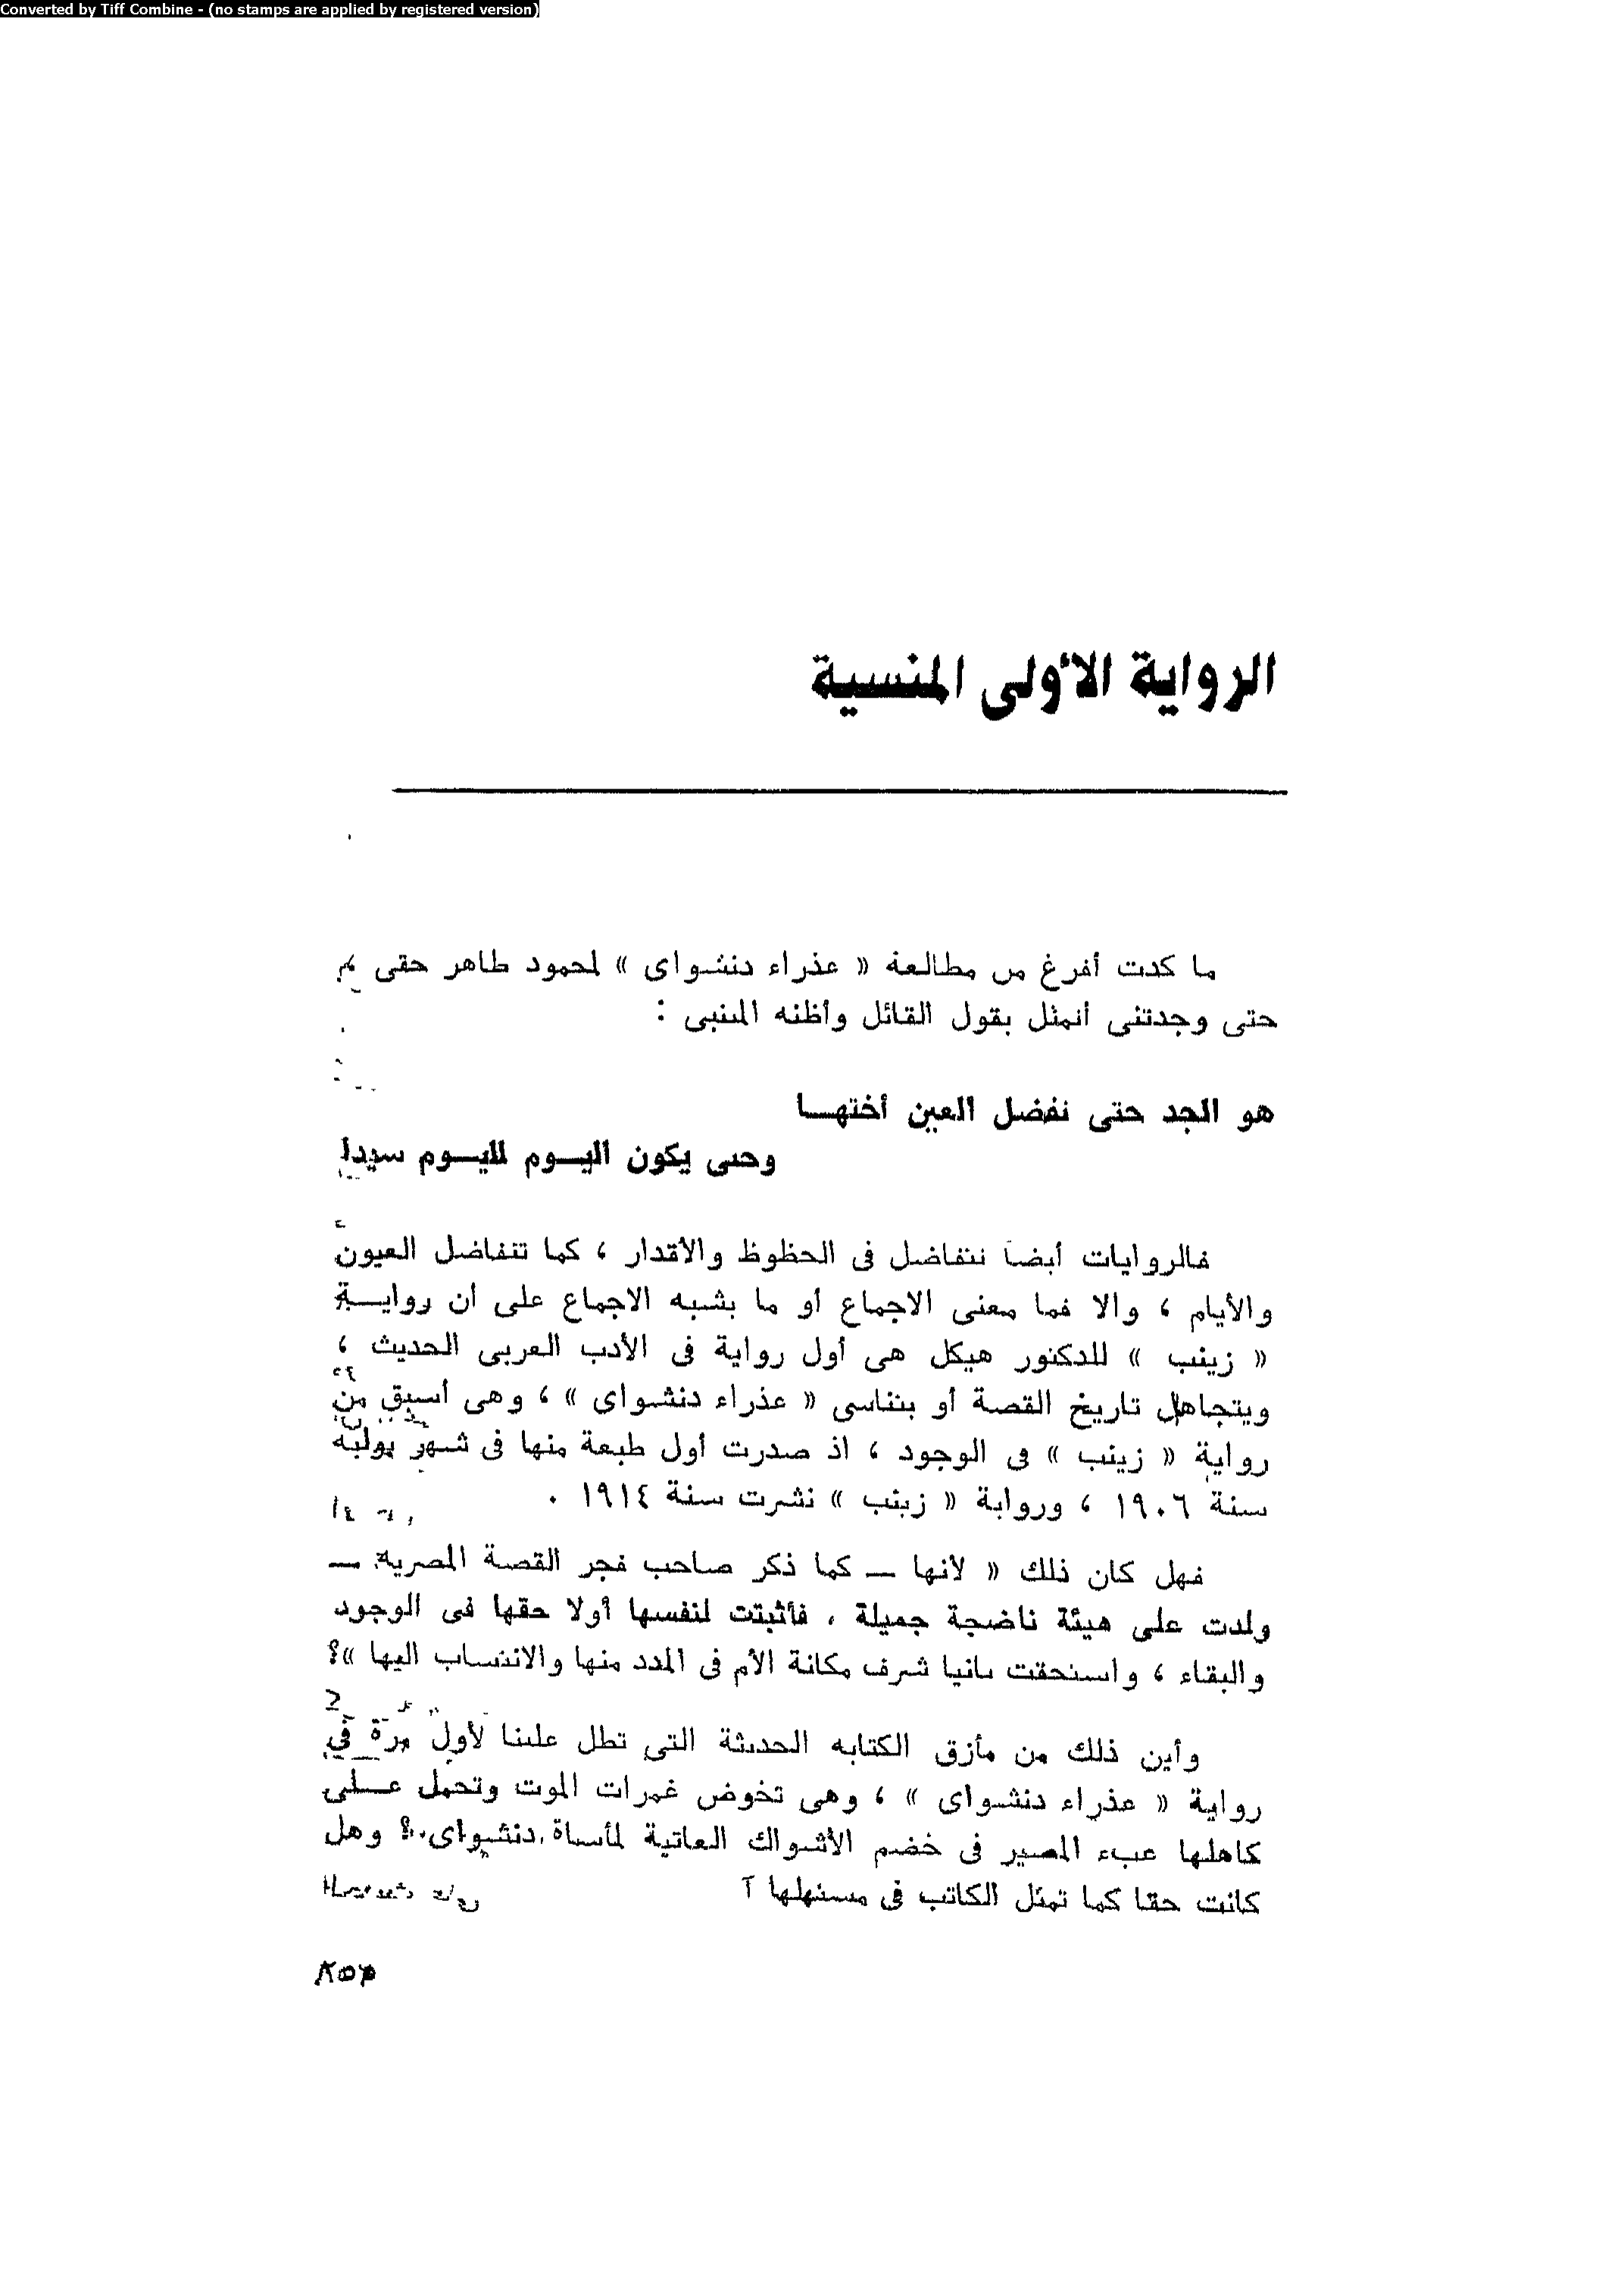 Converted by Tiff Combine - (no stamps are applied by registered version)
الرواية الأولى المنسية
ما كدت أفرغ من مطالعة « عذراء دنشواى » لمحمود طاهر حقى
حتى وجدتنى أتمثل بقول القائل وأظنه المتنبى :
هو الجد حتى تفضل العين أختها
وحتى يكون اليوم لليوم سيدا
فالروايات أيضا تتفاضل فى الحظوظ والأقدار ، كما تتفاضل العيون
والأيام ، والا فما معنى الاجماع أو ما يشبه الاجماع على أن رواية
« زينب » للدكتور هيكل هى أول رواية فى الأدب العربى الحديث ،
ويتجاهل تاريخ القصة أو يتناسى « عذراء دنشواى » ، وهى أسبق من
رواية « زينب » فى الوجود ، اذ صدرت أول طبعة منها فى شهر يولية
سنة ١٩٠٦ ، ورواية « زينب » نشرت سنة ١٩١٤ .
فهل كان ذلك « لأنها — كما ذكر صاحب فجر القصة المصرية —
ولدت على هيئة ناضجة جميلة ، فأثبتت لنفسها أولا حقها فى الوجود
والبقاء ، واستحقت ثانيا شرف مكانة الأم فى المدد منها والانتساب اليها »؟
وأين ذلك من مأزق الكتابة الحديثة التى تطل علينا لأول مرة فى
رواية « عذراء دنشواى » ، وهى تخوض غمرات الموت وتحمل على
كاهلها عبء المصير فى خضم الأشواك العاتية لمأساة دنشواى؟ وهل
كانت حقا كما تمثل الكاتب فى مستهلها